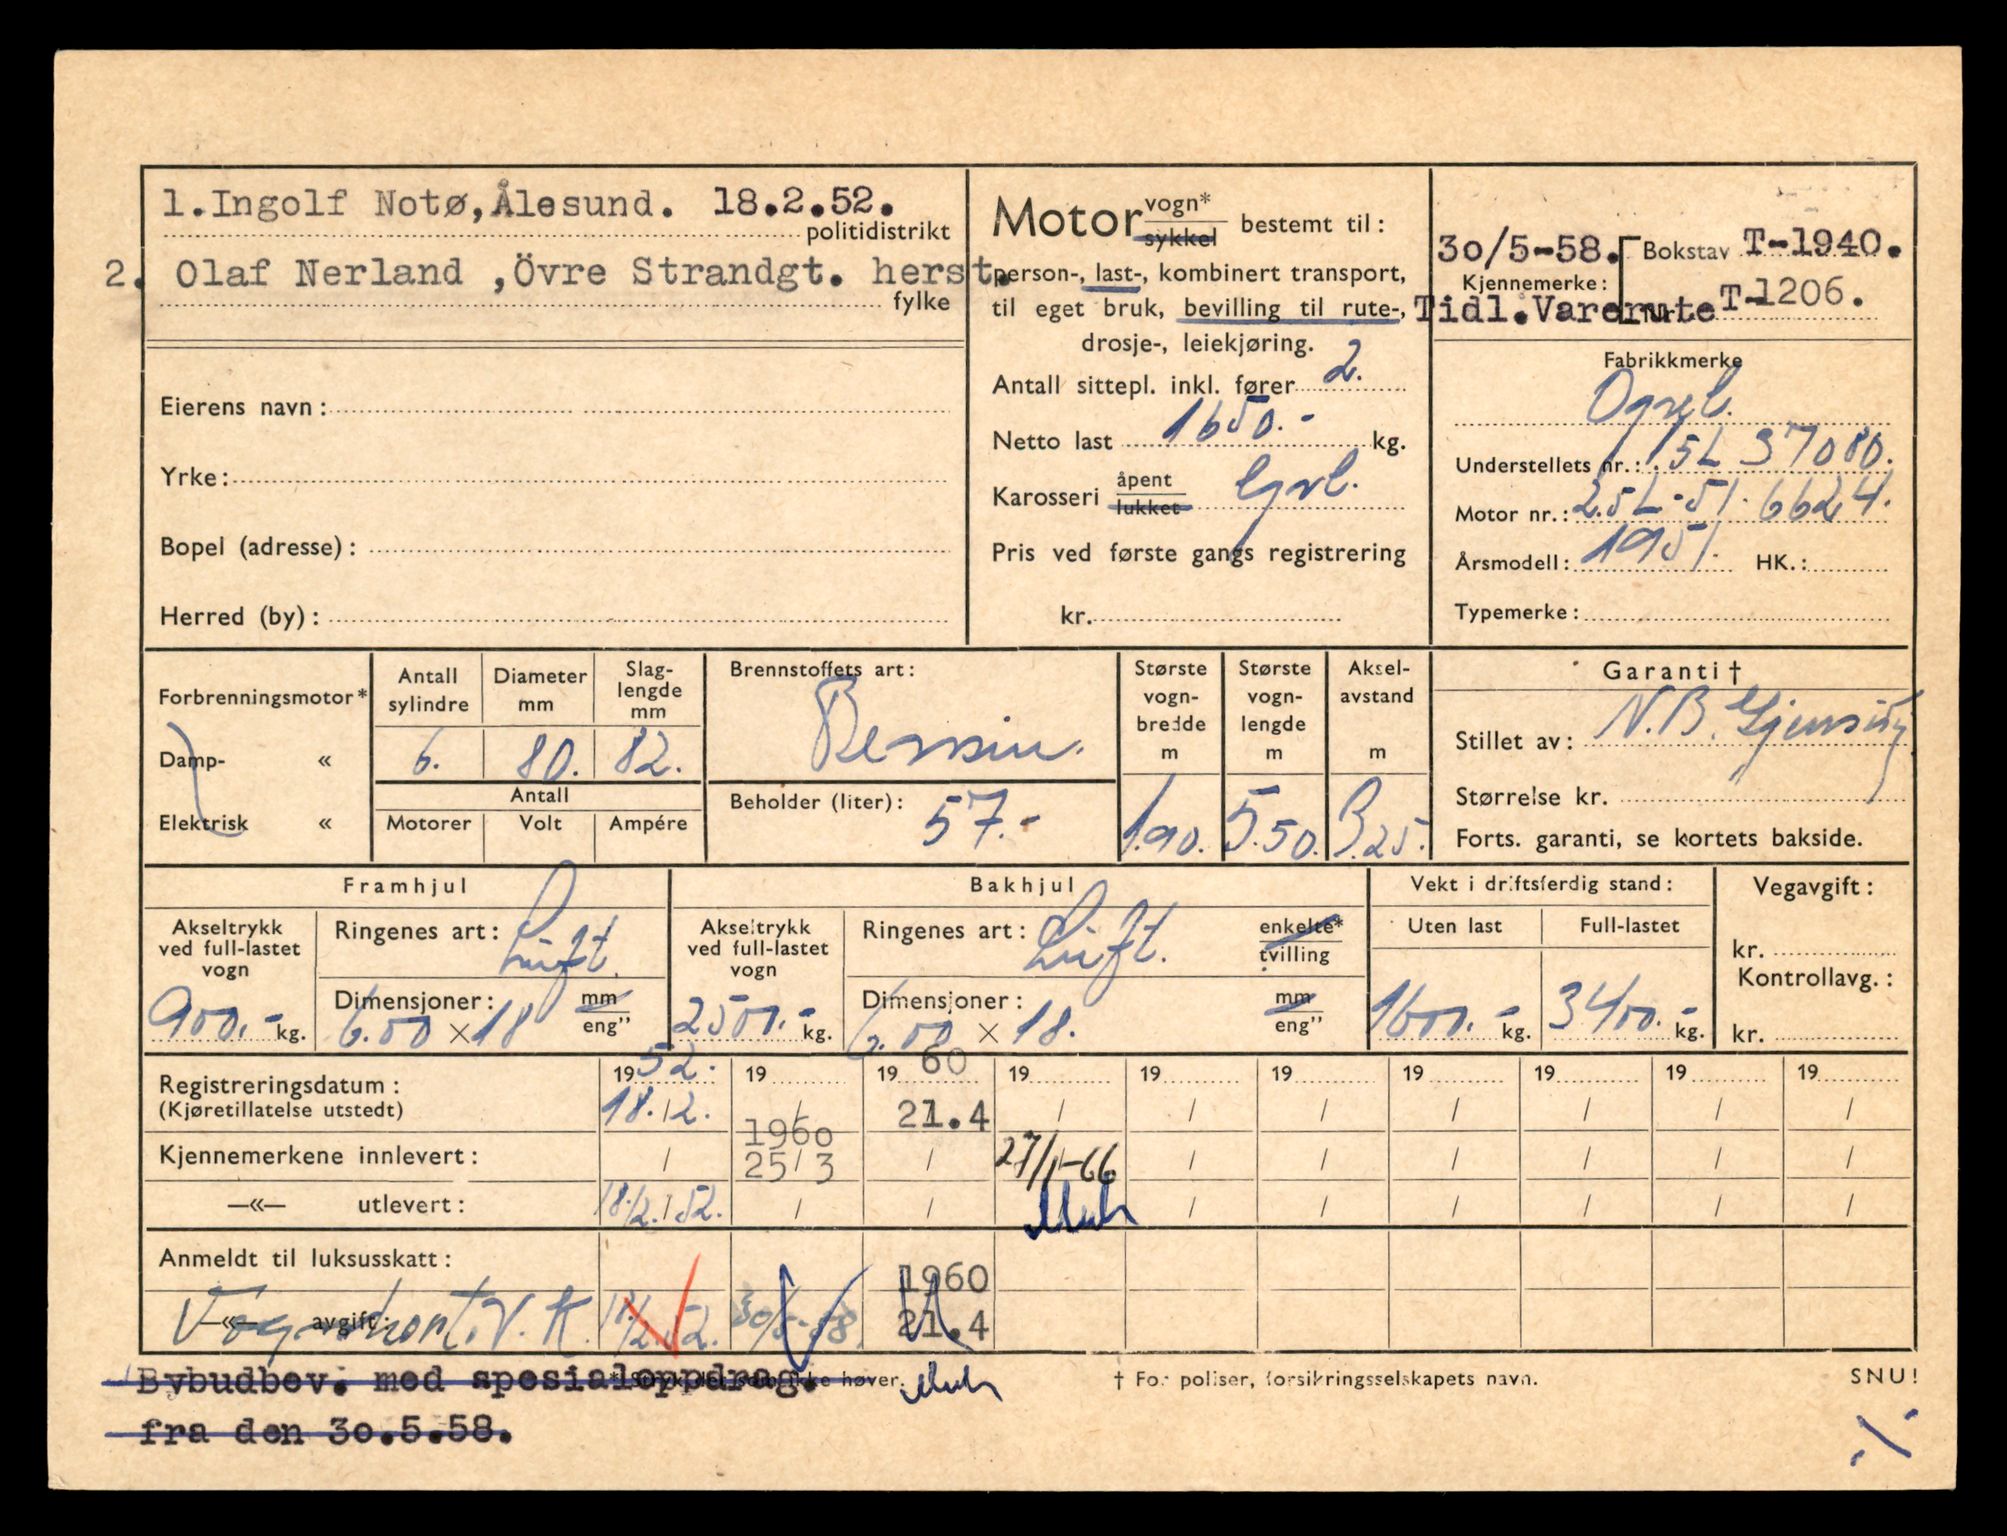 1. Ingolf Notø, Ålesund. 18.2.52.
politidistrikt
2. Olaf Nerland ,Övre Strandgt. herst.
fylke
Eierens navn:
Yrke:
Bopel (adresse):
Herred (by):
Motor vogn* sykkel bestemt til:
person-, last-, kombinert transport,
til eget bruk, bevilling til rute-,
drosje-, leiekjøring.
Antall sittepl. inkl. fører 2.
Netto last 1650.- kg.
Karosseri åpent lukket
Pris ved første gangs registrering
kr.
30/5-58. Bokstav T-1940.
Kjennemerke:
Tidl. Varerute T-1206.
Fabrikkmerke
Opel.
Understellets nr.: 15L 37080.
Motor nr.: 2.5L-51. 6624.
Årsmodell: 1951. HK.:
Typemerke:
Forbrenningsmotor*
Damp- «
Elektrisk «
Antall sylindre 6.
Diameter mm 80.
Slag-lengde mm 82.
Antall
Motorer Volt Ampére
Brennstoffets art:
Bensin.
Beholder (liter): 57.-
Største vogn-bredde m 1.90.
Største vogn-lengde m 5.50.
Aksel-avstand m 3.25.
Garanti †
Stillet av: N.B.
Størrelse kr.
Forts. garanti, se kortets bakside.
Framhjul
Akseltrykk ved full-lastet vogn 900.- kg.
Ringenes art: Luft.
Dimensjoner: 6.00 × 18 mm eng"
Bakhjul
Akseltrykk ved full-lastet vogn 2500.- kg.
Ringenes art: Luft. enkelte* tvilling
Dimensjoner: 6.00 × 18. mm eng"
Vekt i driftsferdig stand:
Uten last 1600.- kg.
Full-lastet 3400.- kg.
Vegavgift:
kr.
Kontrollavg.:
kr.
Registreringsdatum: 1952. 19 1960 19 19 19 19 19 19 19
(Kjøretillatelse utstedt) 18./2. / 21.4 / / / / / / /
Kjennemerkene innlevert: / 1960 25/3 / 27/1-66 / / / / / /
—«— utlevert: 18/2.52. / / / / / / / /
Anmeldt til luksusskatt: 1960
—«— avgift: V.K. 18/2.52. 30/5-58. 21.4
Bybudbev. med spesialoppdrag.
† For poliser, forsikringsselskapets navn. SNU!
fra den 30.5.58.